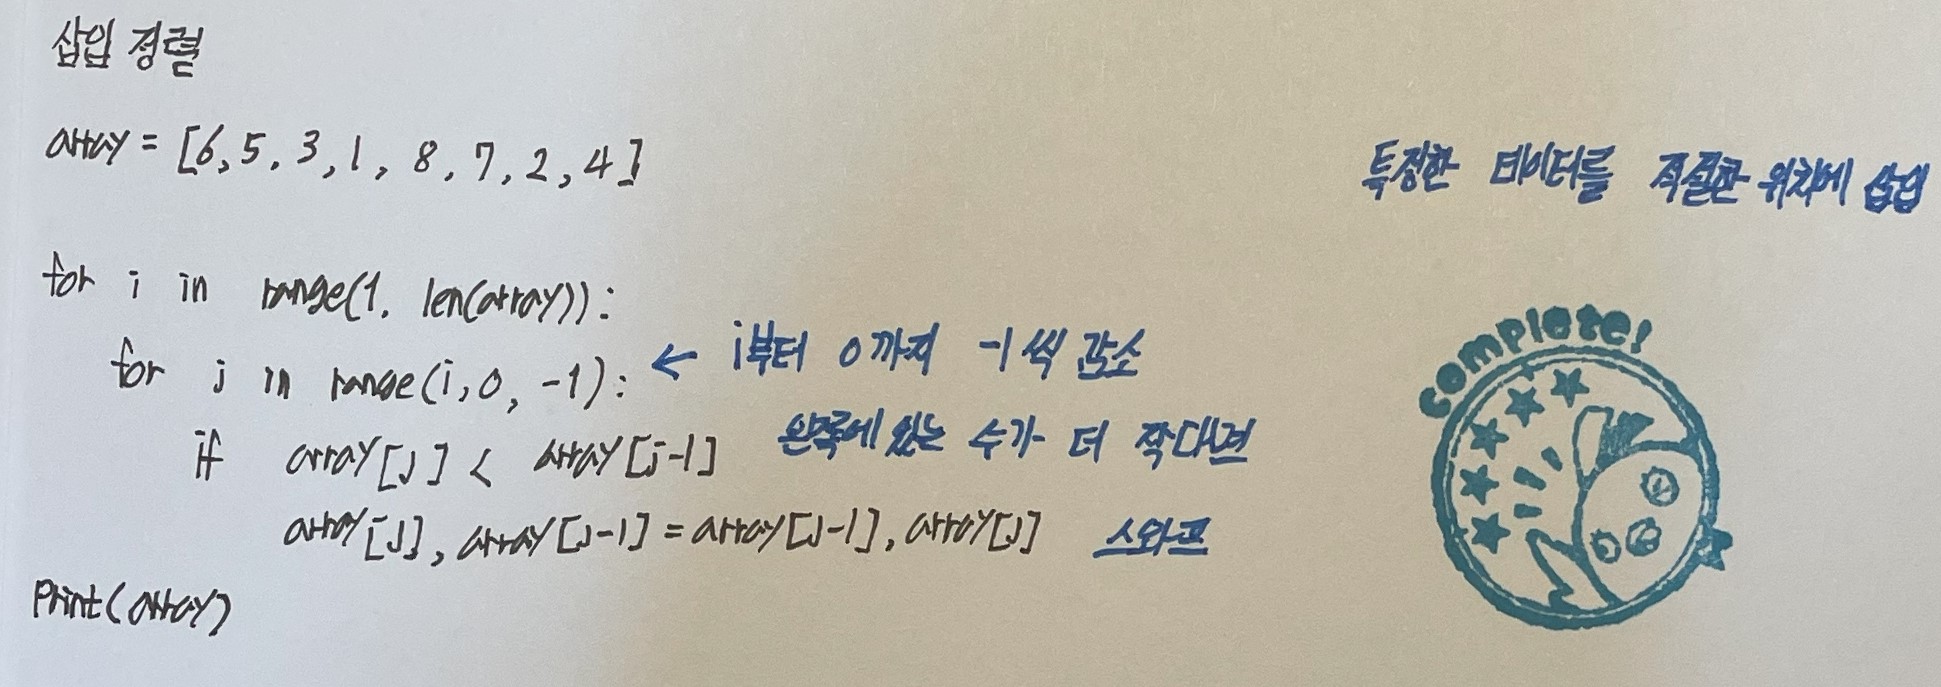 삽입 정렬
array = [6, 5, 3, 1, 8, 7, 2, 4]
특정한 데이터를 적절한 위치에 삽입
for i in range(1, len(array)):
for j in range(i, 0, -1): ← i부터 0까지 -1씩 감소
if array[j] < array[j-1] 왼쪽에 있는 수가 더 작다면
array[j], array[j-1] = array[j-1], array[j] 스와프
Print(array)
complete!